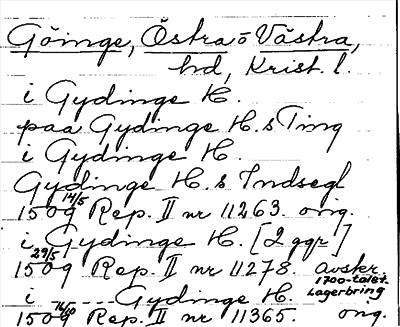 Göinge, Östra o Västra,
hd, Krist. l.
i Gydinge H.
paa Gydinge H. s Ting
i Gydinge H.
Gydinge H. s Indsegl
14/5 1509 Rep. II nr 11263. orig.
i Gydinge H. [2 ggr]
29/5 1509 Rep. II nr 11278. avskr. 1700-talet. Lagerbring
i ---- Gydinge H.
1509 Rep. II nr 11365. orig.